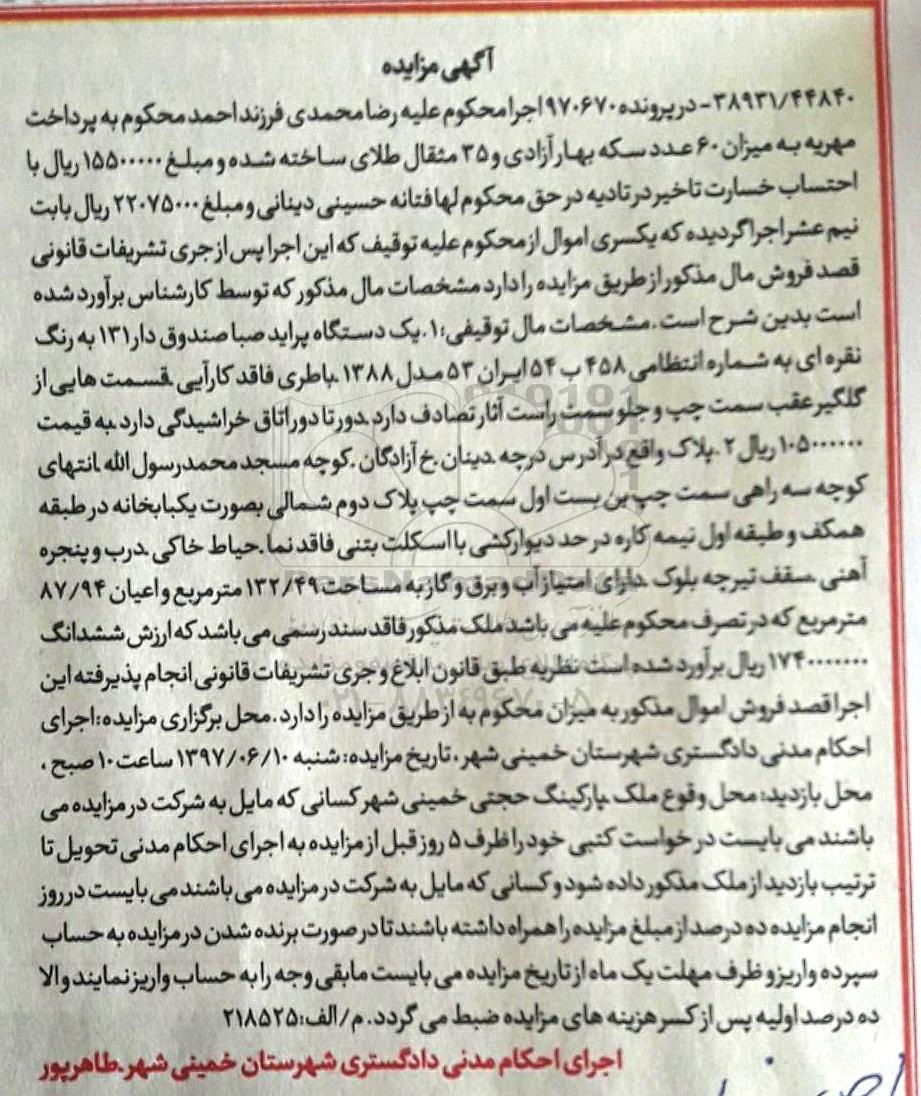 آگهی مزایده
۳۸۹۳۱/۴۴۸۴۰- در پرونده ۹۷۰۶۷۰ اجرا محکوم علیه رضا محمدی فرزند احمد محکوم به پرداخت
مهریه به میزان ۶۰ عدد سکه بهار آزادی و ۳۵ مثقال طلای ساخته شده و مبلغ ۱۵۵۰۰۰۰۰ ریال با
احتساب خسارت تاخیر در تادیه در حق محکوم لها فتانه حسینی دینانی و مبلغ ۲۲۰۷۵۰۰۰ ریال بابت
نیم عشر اجرا گردیده که یکسری اموال از محکوم علیه توقیف که این اجرا پس از جری تشریفات قانونی
قصد فروش مال مذکور از طریق مزایده را دارد مشخصات مال مذکور که توسط کارشناس برآورد شده
است بدین شرح است. مشخصات مال توقیفی: ۱. یک دستگاه پراید صبا صندوق دار ۱۳۱ به رنگ
نقره ای به شماره انتظامی ۴۵۸ ب ۵۴ ایران ۵۳ مدل ۱۳۸۸. باطری فاقد کارآیی. قسمت هایی از
گلگیر عقب سمت چپ و جلو سمت راست آثار تصادف دارد. دور تا دور اتاق خراشیدگی دارد. به قیمت
۱۰۵۰۰۰۰۰۰ ریال ۲. پلاک واقع در آدرس درچه. دینان. خ آزادگان. کوچه مسجد محمد رسول الله. انتهای
کوچه سه راهی سمت چپ بن بست اول سمت چپ پلاک دوم شمالی بصورت یکبابخانه در طبقه
همکف و طبقه اول نیمه کاره در حد دیوارکشی با اسکلت بتنی فاقد نما. حیاط خاکی. درب و پنجره
آهنی. سقف تیرچه بلوک. دارای امتیاز آب و برق و گاز به مساحت ۱۳۲/۴۹ مترمربع و اعیان ۸۷/۹۴
مترمربع که در تصرف محکوم علیه می باشد ملک مذکور فاقد سند رسمی می باشد که ارزش ششدانگ
۱۷۴۰۰۰۰۰۰۰ ریال برآورد شده است نظریه طبق قانون ابلاغ و جری تشریفات قانونی انجام پذیرفته این
اجرا قصد فروش اموال مذکور به میزان محکوم به از طریق مزایده را دارد. محل برگزاری مزایده: اجرای
احکام مدنی دادگستری شهرستان خمینی شهر. تاریخ مزایده: شنبه ۱۳۹۷/۰۶/۱۰ ساعت ۱۰ صبح،
محل بازدید: محل وقوع ملک. پارکینگ حجتی خمینی شهر کسانی که مایل به شرکت در مزایده می
باشند می بایست درخواست کتبی خود را ظرف ۵ روز قبل از مزایده به اجرای احکام مدنی تحویل تا
ترتیب بازدید از ملک مذکور داده شود و کسانی که مایل به شرکت در مزایده می باشند می بایست در روز
انجام مزایده ده درصد از مبلغ مزایده را همراه داشته باشند تا در صورت برنده شدن در مزایده به حساب
سپرده واریز و ظرف مهلت یک ماه از تاریخ مزایده می بایست مابقی وجه را به حساب واریز نمایند والا
ده درصد اولیه پس از کسر هزینه های مزایده ضبط می گردد. م/الف: ۲۱۸۵۲۵
اجرای احکام مدنی دادگستری شهرستان خمینی شهر. طاهرپور